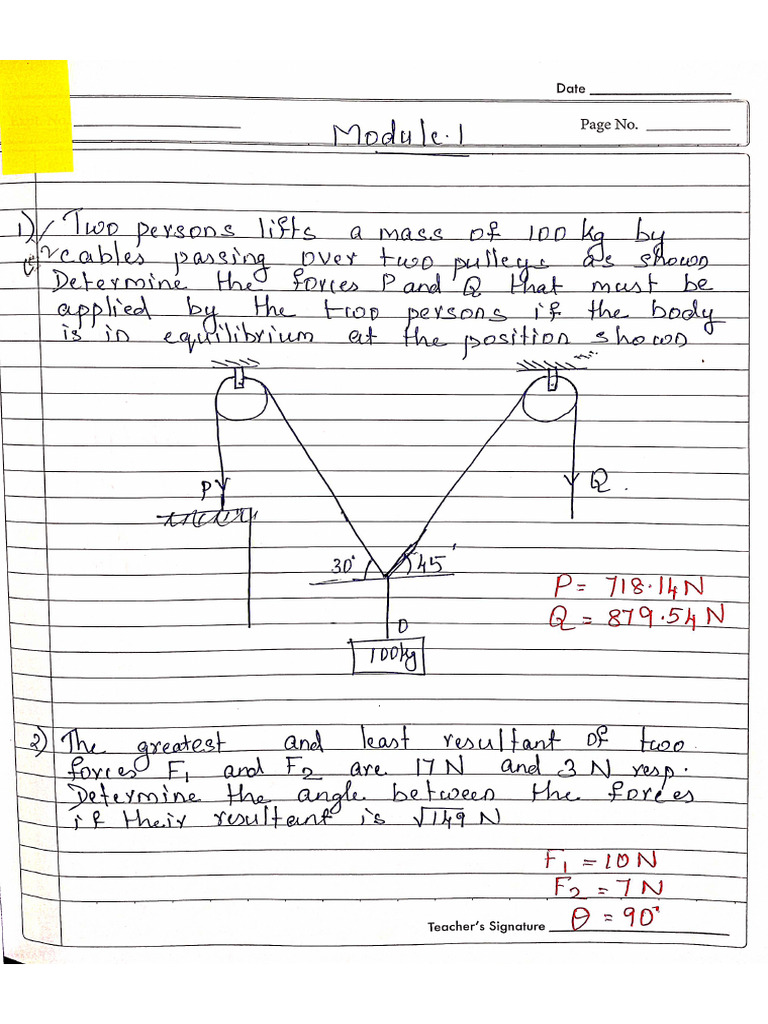 Date
Expt. No.
Page No.
Module.1
1) Two persons lifts a mass of 100 kg by
2 cables passing over two pulleys as shown
Determine the forces P and Q that must be
applied by the two persons if the body
is in equilibrium at the position shown
P
Q.
30°
45°
P = 718.14N
Q = 879.54N
D
100kg
2) The greatest and least resultant of two
forces F1 and F2 are 17N and 3N resp.
Determine the angle between the forces
if their resultant is √149 N
F1 = 10N
F2 = 7N
Teacher's Signature
θ = 90°